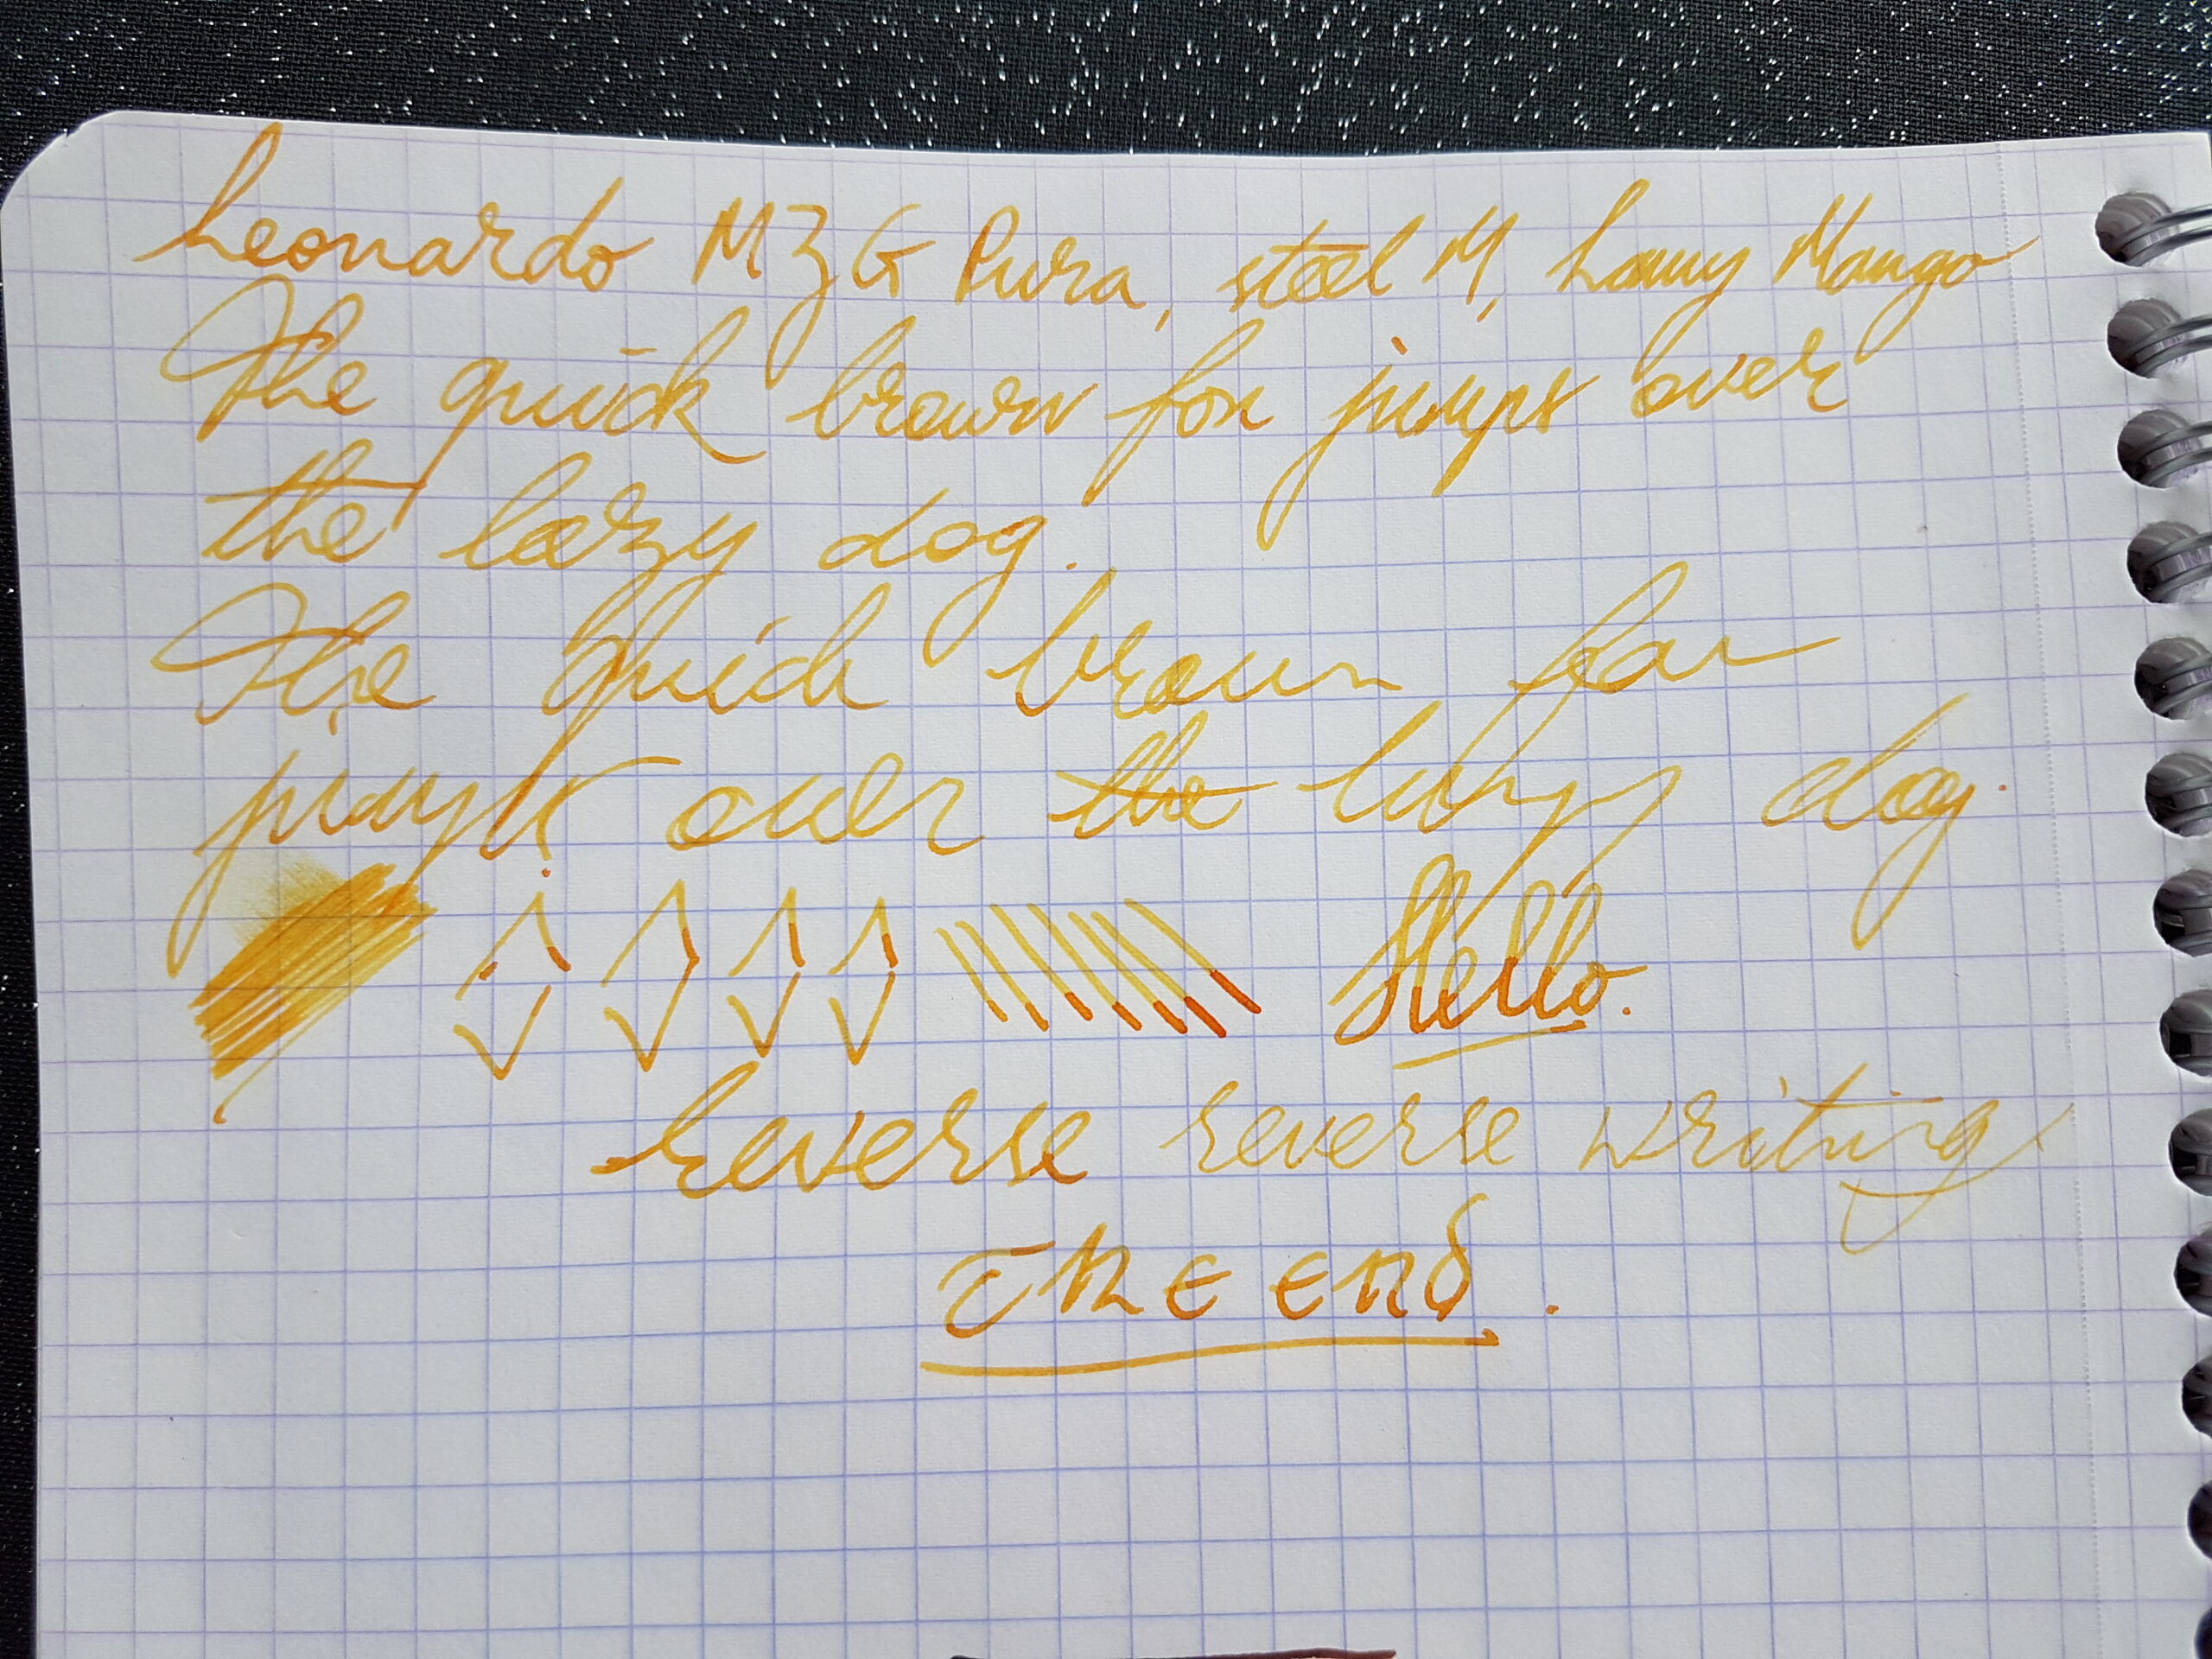 Leonardo MZG Pura, steel M, Lamy Mango
The quick brown fox jumps over
the lazy dog.
The quick brown fox
jumps over the lazy dog.
Hello.
Reverse reverse writing
The end.